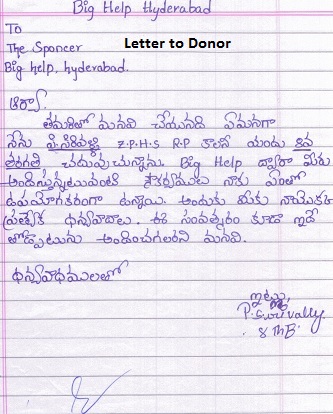 Big Help Hyderabad
To
The Sponcer
Letter to Donor
Big help, hyderabad.
ఆర్యా.
తమరితో మనవి చేయునది ఏమనగా
నేను పి.సిరివల్లి Z.P.H.S R.P కాలనీ యందు 8వ
తరగతి చదువుచున్నాను. Big Help ద్వారా మీరు
అందిస్తున్నటువంటి సౌకర్యములు నాకు ఎంతో
ఉపయోగకరంగా ఉన్నాయి. అందుకు మీకు నాయొక్క
ప్రత్యేక ధన్యవాదాలు. ఈ సంవత్సరం కూడా ఇదే
తోడ్పాటును అందించగలరని మనవి.
ధన్యవాదములతో
ఇట్లు
P.Sirivally.
8th B.